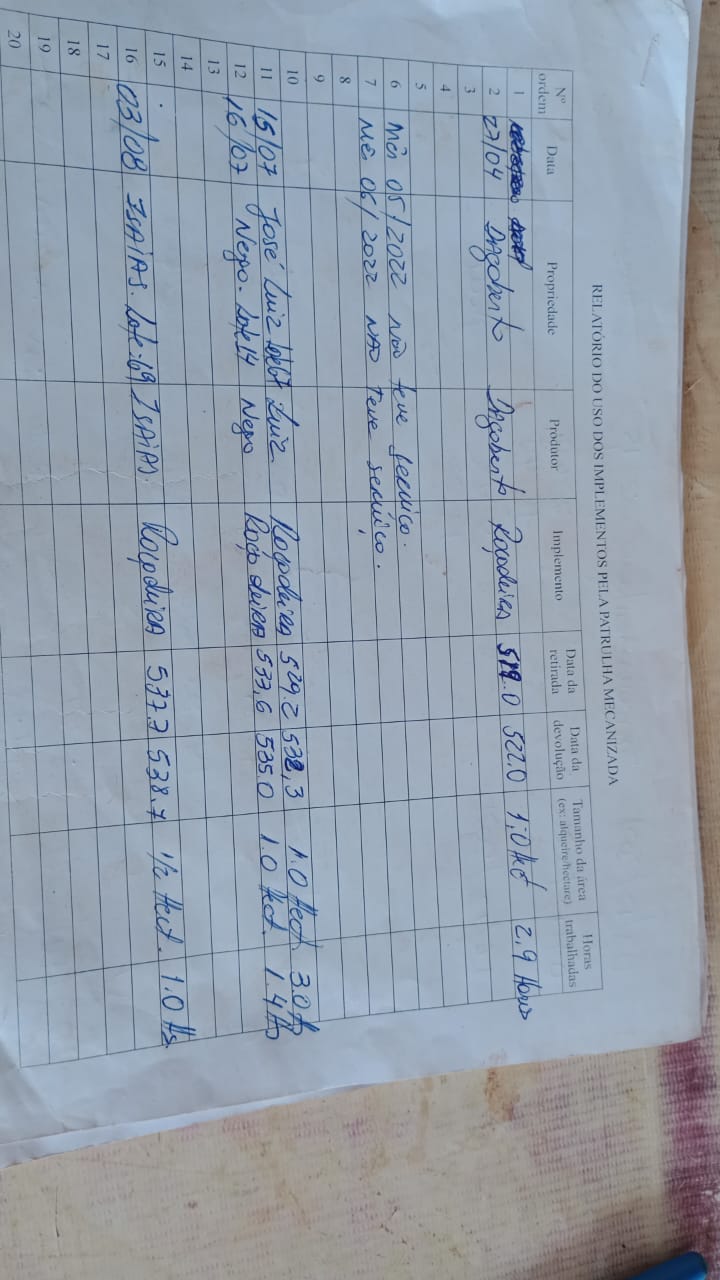 RELATÓRIO DO USO DOS IMPLEMENTOS PELA PATRULHA MECANIZADA
Nº ordem Data Propriedade Produtor Implemento Data da retirada Data da devolução Tamanho da área (ex: alqueire/hectare) Horas trabalhadas
1
2 27/04 Dagoberto Dagoberto Roçadeira 519.0 522.0 1,0 Hect 2,9 Horas
3
4
5
6 Mês 05/2022 não teve serviço.
7 Mês 06/2022 NÃO Teve serviço.
8
9
10
11 15/07 José Luiz Luiz. Roçadeira 529.2 532,3 1.0 Hect 3.0 Hs
12 16/07 Nego. Lote 14 Nego Roçadeira 533,6 535.0 1.0 Hect. 1.4 Hs
13
14
15
16 03/08 ISAIAS. Lote-69 ISAIAS. Roçadeira 537.7 538.7 1/2 Hect. 1.0 Hs.
17
18
19
20